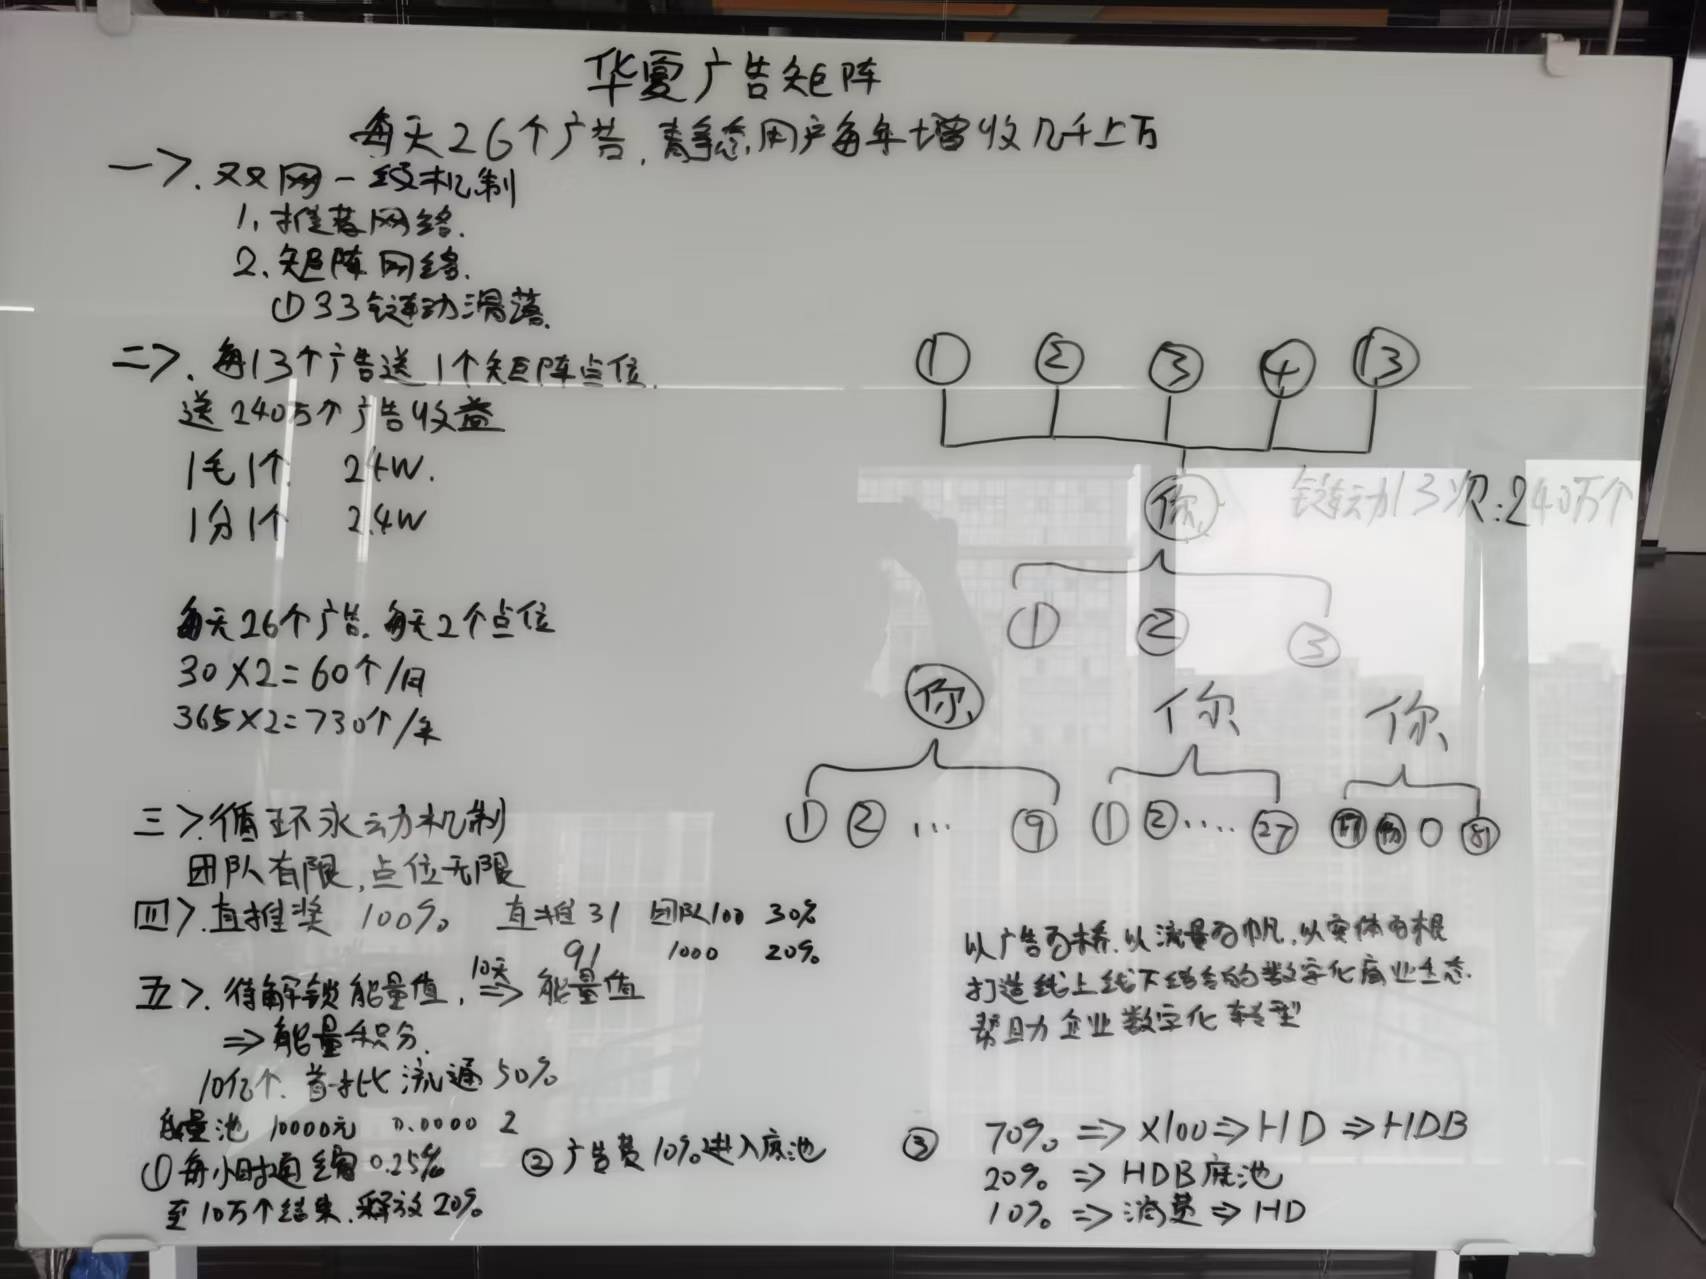 华夏广告矩阵
每天26个广告,静态用户每年增收几千上万
一>.双网一线机制
1.推荐网络.
2.矩阵网络.
①33链动滑落.
二>.每13个广告送1个矩阵点位.
送240万个广告收益
1毛1个. 24W.
1分1个 2.4W
每天26个广告.每天2个点位
30×2=60个/月
365×2=730个/年
① ② ③ ④ ⑬
你
链动13次:240万个
① ② ③
你 你 你
① ② ... ⑨ ① ② .... ㉗ 你 你 ○ 81
三>.循环永动机制
团队有限,点位无限
四>.直推奖 100% 直推31 团队100 30%
91 1000 20%
五>.待解锁能量值, 10天 ⇒ 能量值
⇒能量积分.
10亿个.首批流通50%
能量池 10000元 0.0000 2
①每小时通缩0.25%
至10万个结束.释放20%
②广告费10%进入底池
以广告为桥.以流量为帆.以实体为根
打造线上线下结合的数字化商业生态.
帮助企业数字化转型
③ 70% ⇒ X100 ⇒ HD ⇒ HDB
20% ⇒ HDB底池
10% ⇒ 消费 ⇒ HD